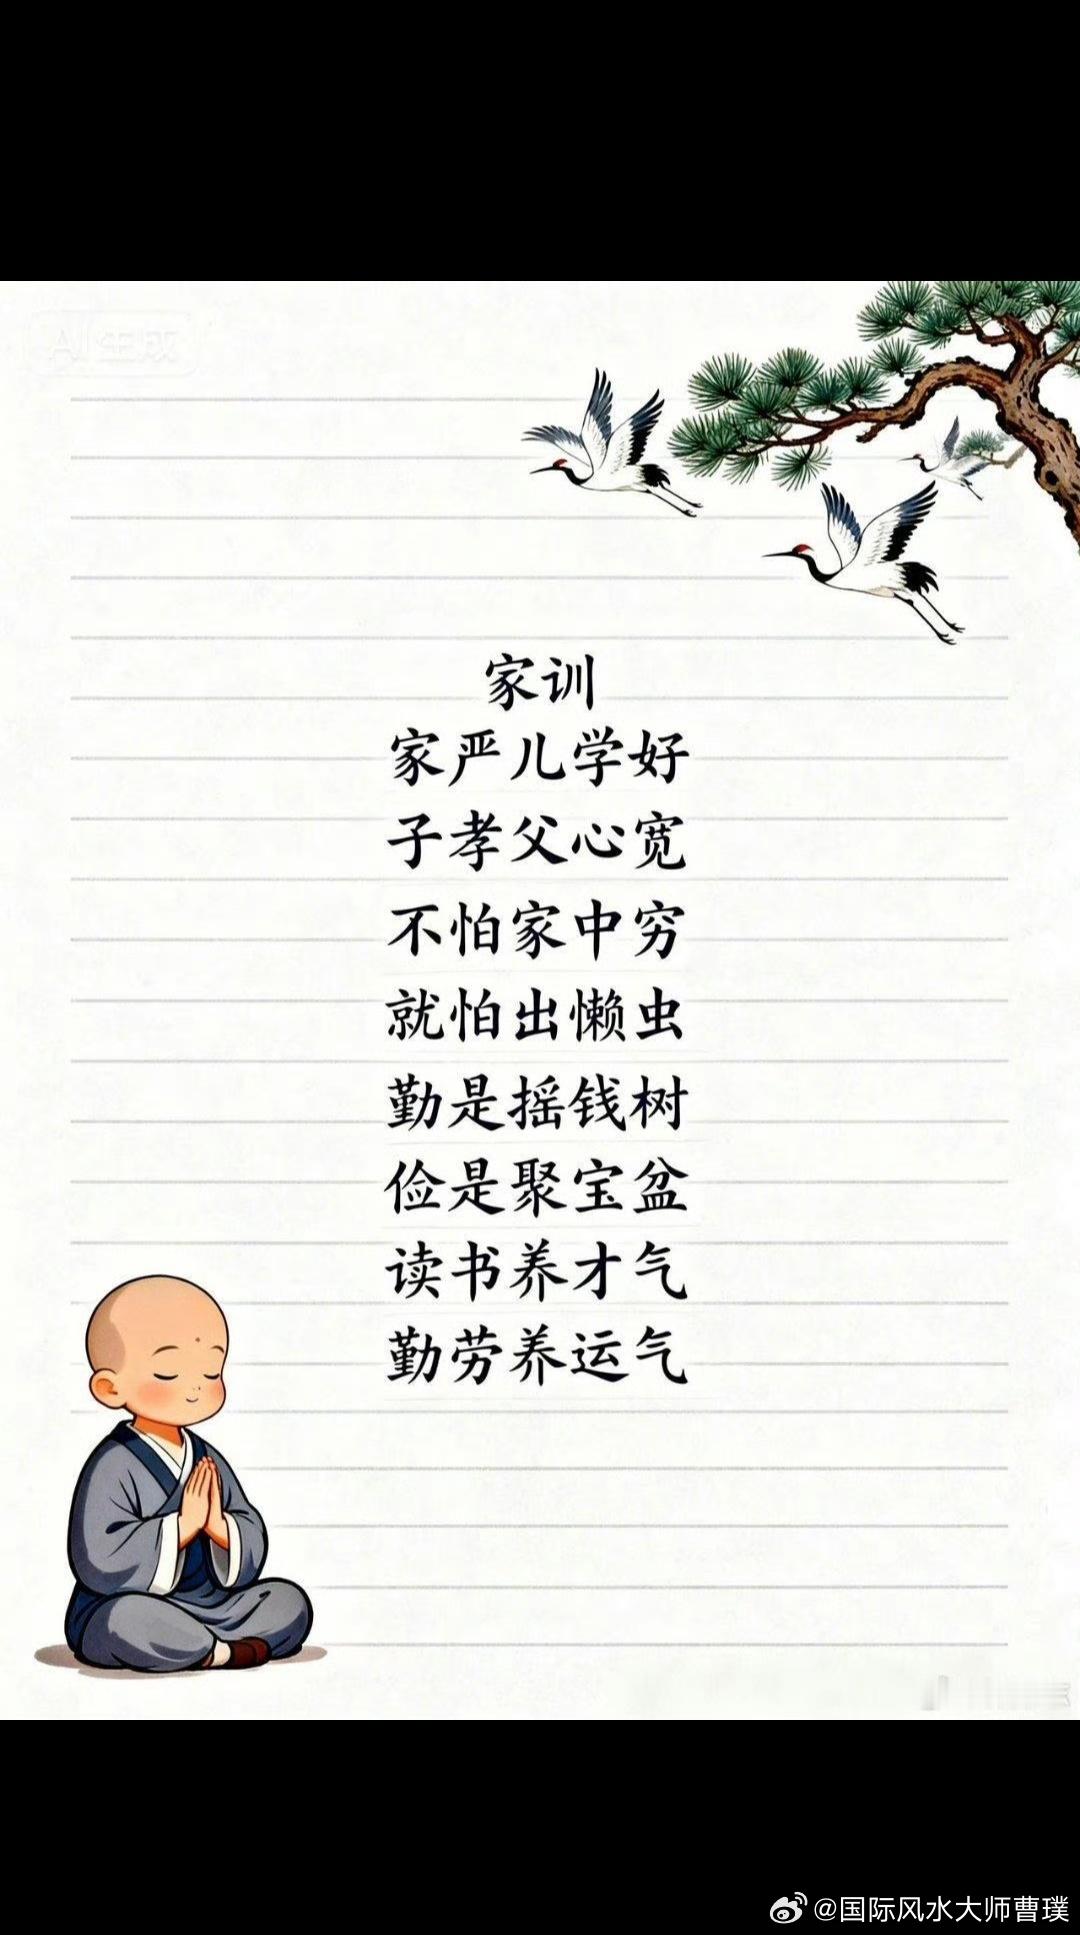 AI生成
家训
家严儿学好
子孝父心宽
不怕家中穷
就怕出懒虫
勤是摇钱树
俭是聚宝盆
读书养才气
勤劳养运气
@国际风水大师曹璞